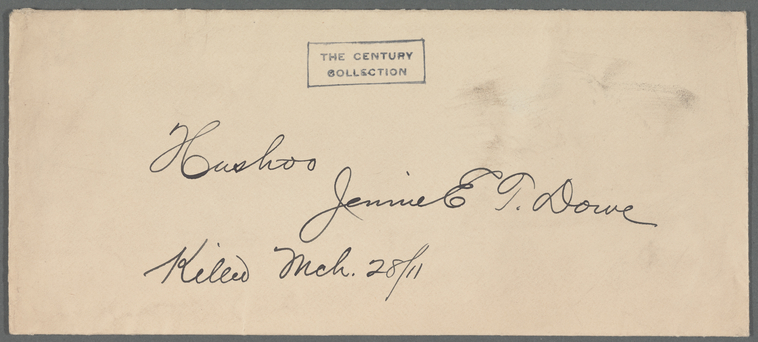 THE CENTURY
COLLECTION
Hushoo
Jennie E. T. Dowe
Killed Mch. 28/11